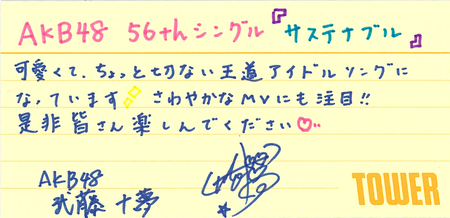 AKB48 56thシングル『サステナブル』
可愛くて、ちょっと切ない王道アイドルソングに
なっています さわやかなMVにも注目!!
是非皆さん楽しんでください♡..
AKB48
武藤十夢
TOWER